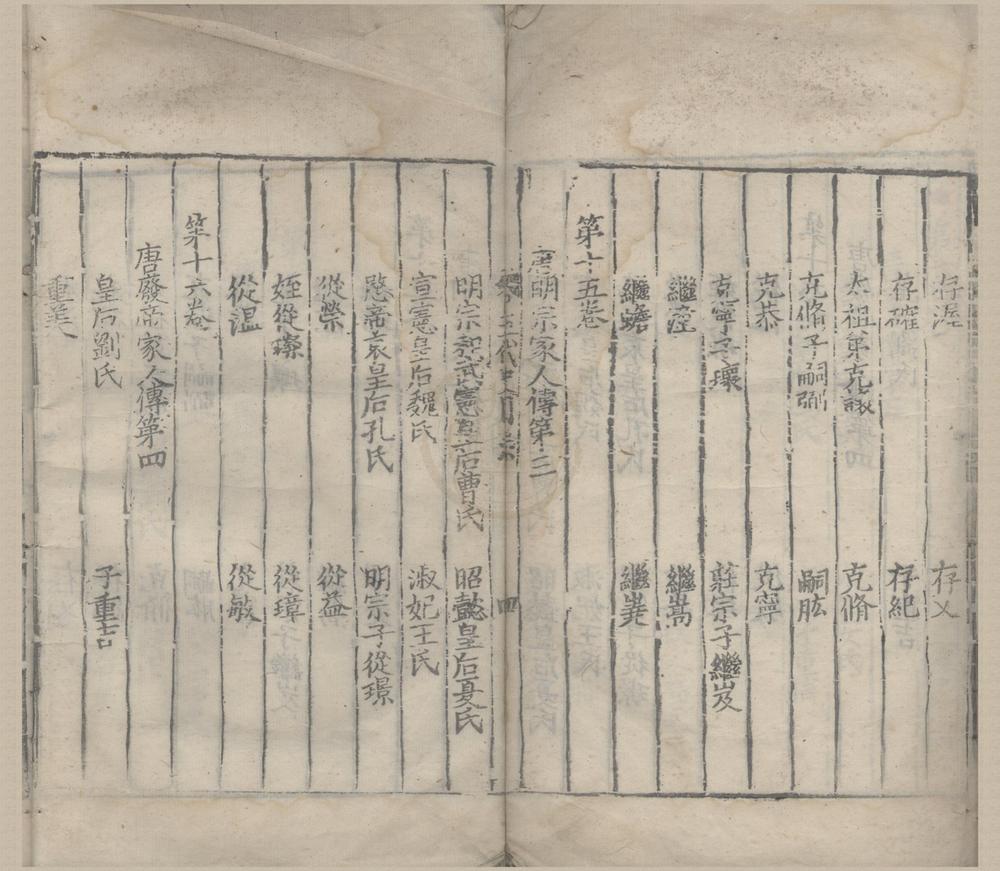 存渥 存乂
存確 存紀
太祖弟克讓 克脩
克脩子嗣弼 嗣肱
克恭 克寧
克寧子瓌 莊宗子繼岌
繼潼 繼嵩
繼蟾 繼嶤
第十五卷
唐明宗家人傳第三
四
明宗和武憲皇后曹氏 昭懿皇后夏氏
宣憲皇后魏氏 淑妃王氏
愍帝哀皇后孔氏 明宗子從璟
從榮 從益
姪從璨 從璋
從温 從敏
第十六卷
唐廢帝家人傳第四
皇后劉氏 子重吉
重美